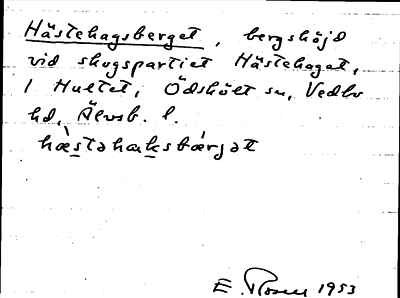 Hästehagsberget, bergshöjd
vid skogspartiet Hästehaget,
1 Hultet, Ödskölt sn, Vedbo
hd, Älvsb. l.
hæ̀stəhaksbærjət
E. Rosen 1953